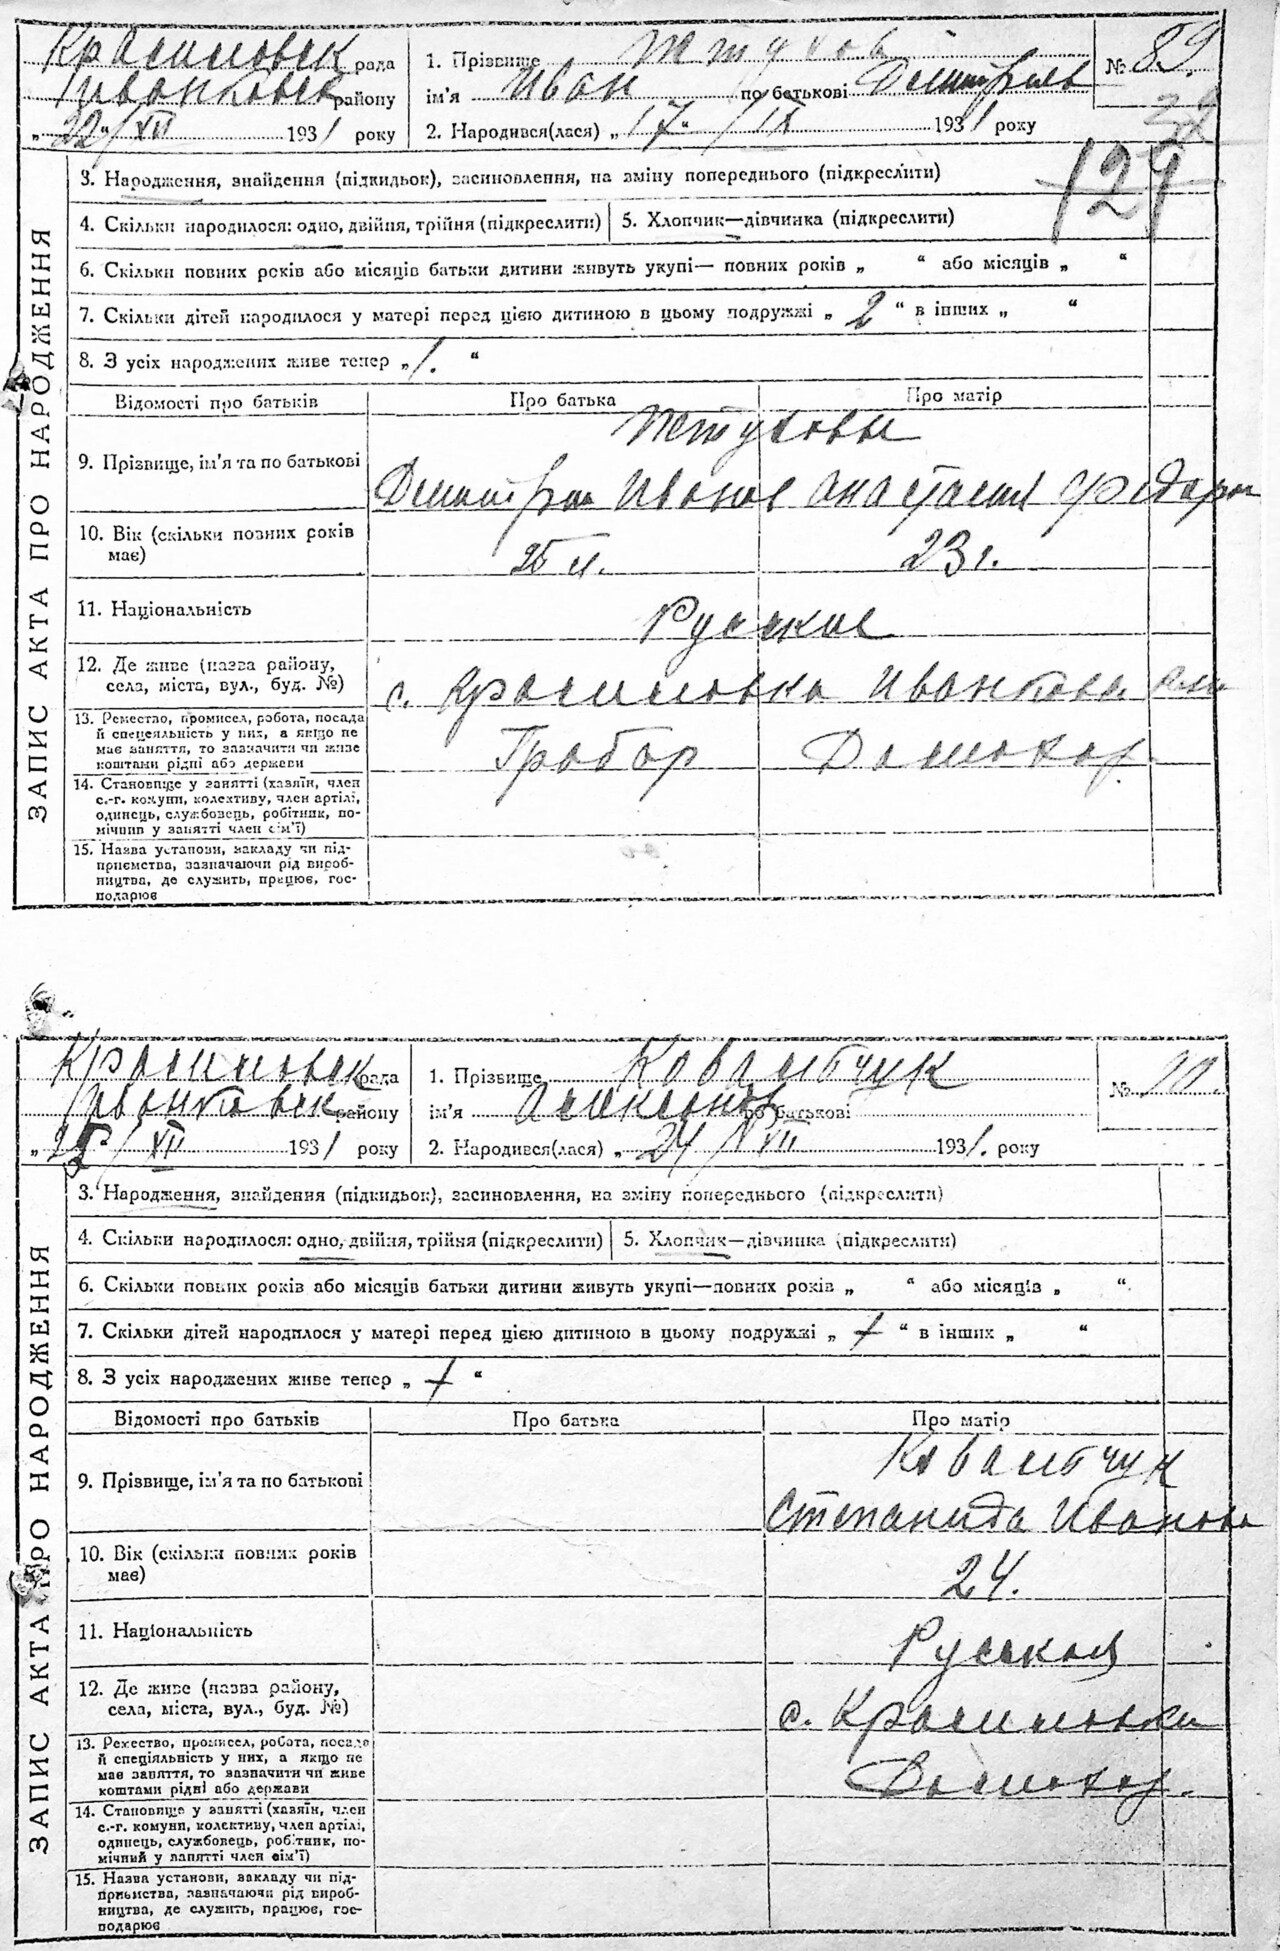 Красиловск рада
Иванковск району
„22“/XII 1931 року
1. Прізвище Жтухов
ім'я Иван по батькові
2. Народився(лася) „17“/IX 1931 року
№ 89.
32
124
ЗАПИС АКТА ПРО НАРОДЖЕННЯ
3. Народження, знайдення (підкидьок), засиновлення, на зміну попереднього (підкреслити)
4. Скільки народилося: одно, двійня, трійня (підкреслити) 5. Хлопчик—дівчинка (підкреслити)
6. Скільки повних років або місяців батьки дитини живуть укупі— повних років „ “ або місяців „ “
7. Скільки дітей народилося у матері перед цією дитиною в цьому подружжі „ 2 “ в інших „ “
8. З усіх народжених живе тепер „ 1. “
Відомості про батьків Про батька Про матір
Жтуховы
9. Прізвище, ім'я та по батькові
Иванов Анастасия
10. Вік (скільки повних років
має)
25 л. 23 г.
11. Національність Русские
12. Де живе (назва району,
села, міста, вул., буд. №)
с. Красиловка Иванков.
13. Ремество, промисел, робота, посада
й спеціяльність у них, а якщо не
має заняття, то зазначити чи живе
коштами рідні або держави
Грабар Домохоз.
14. Становище у занятті (хазяїн, член
с.-г. комуни, колективу, член артілі,
одинець, службовець, робітник, по-
мічний у занятті член сім'ї)
15. Назва установи, закладу чи під-
приємства, зазначаючи рід вироб-
ництва, де служить, працює, гос-
подарює
Красиловск рада
Иванковск району
„25“/XII 1931 року
1. Прізвище Ковальчук
ім'я по батькові
2. Народився(лася) „24/XII 1931. року
№ 90.
ЗАПИС АКТА ПРО НАРОДЖЕННЯ
3. Народження, знайдення (підкидьок), засиновлення, на зміну попереднього (підкреслити)
4. Скільки народилося: одно, двійня, трійня (підкреслити) 5. Хлопчик—дівчинка (підкреслити)
6. Скільки повних років або місяців батьки дитини живуть укупі—повних років „ “ або місяців „ “
7. Скільки дітей народилося у матері перед цією дитиною в цьому подружжі „ “ в інших „ “
8. З усіх народжених живе тепер „ “
Відомості про батьків Про батька Про матір
Ковальчук
9. Прізвище, ім'я та по батькові
Степанида Иванова
10. Вік (скільки повних років
має)
24.
11. Національність Русская
12. Де живе (назва району,
села, міста, вул., буд. №)
с. Красиловка
13. Ремество, промисел, робота, посада
й спеціяльність у них, а якщо не
має заняття, то зазначити чи живе
коштами рідні або держави
Домохоз.
14. Становище у занятті (хазяїн, член
с.-г. комуни, колективу, член артілі,
одинець, службовець, робітник, по-
мічний у занятті член сім'ї)
15. Назва установи, закладу чи під-
приємства, зазначаючи рід вироб-
ництва, де служить, працює, гос-
подарює